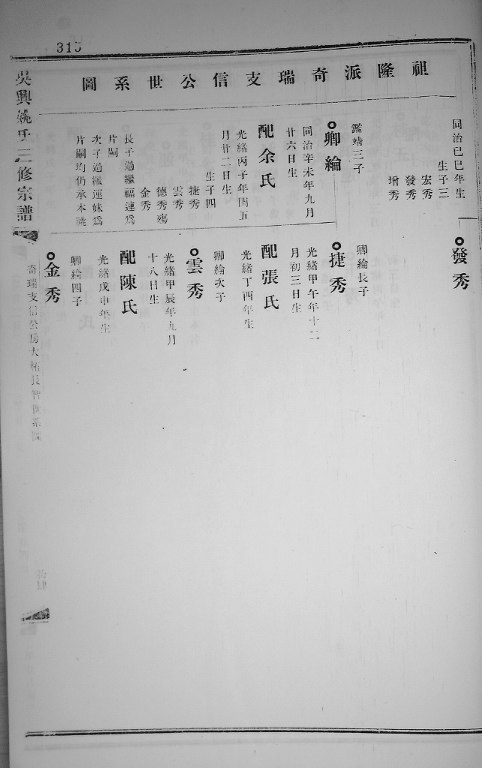 315
祖隆派奇瑞支信公世系圖
同治己巳年生
生子三
宏秀
發秀
增秀
卿綸
三子
同治辛未年九月
廿六日生
配余氏
光緒丙子年四五
月廿二日生
生子四
捷秀
雲秀
德秀殤
金秀
長子過繼福達爲
片嗣
次子過繼連妹爲
片嗣均仍承本祧
發秀
卿綸長子
捷秀
光緒甲午年十二
月初三日生
配張氏
光緒丁酉年生
卿綸次子
雲秀
光緒甲辰年九月
十八日生
配陳氏
光緒戊申年生
卿綸四子
金秀
吳興姚氏三修宗譜
奇瑞支信公房大